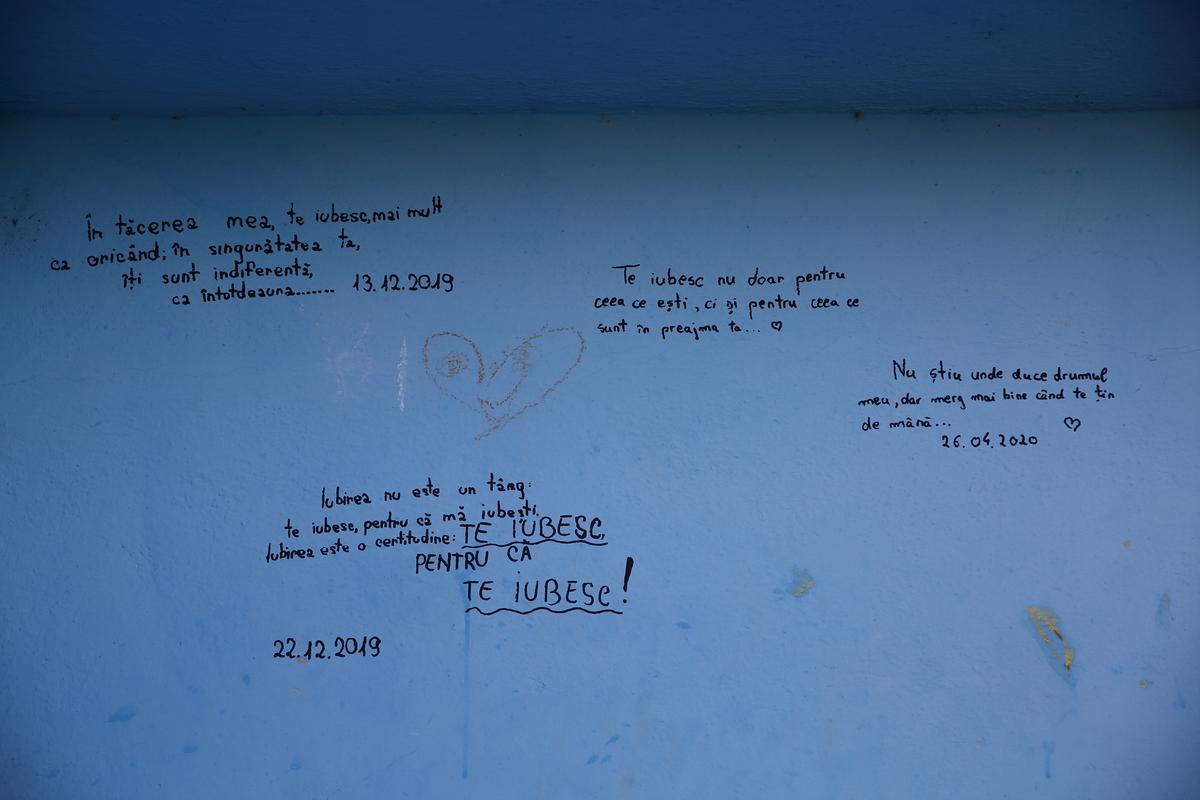 În tăcerea mea, te iubesc, mai mult
ca oricând; în singurătatea ta,
îți sunt indiferentă,
ca întotdeauna....... 13.12.2019
Te iubesc nu doar pentru
ceea ce ești, ci și pentru ceea ce
sunt în preajma ta... ♡
Nu știu unde duce drumul
meu, dar merg mai bine când te țin
de mână... ♡
26.04.2020
Iubirea nu este un târg:
te iubesc, pentru că mă iubești.
Iubirea este o certitudine: TE IUBESC,
PENTRU CĂ
TE IUBESC!
22.12.2019